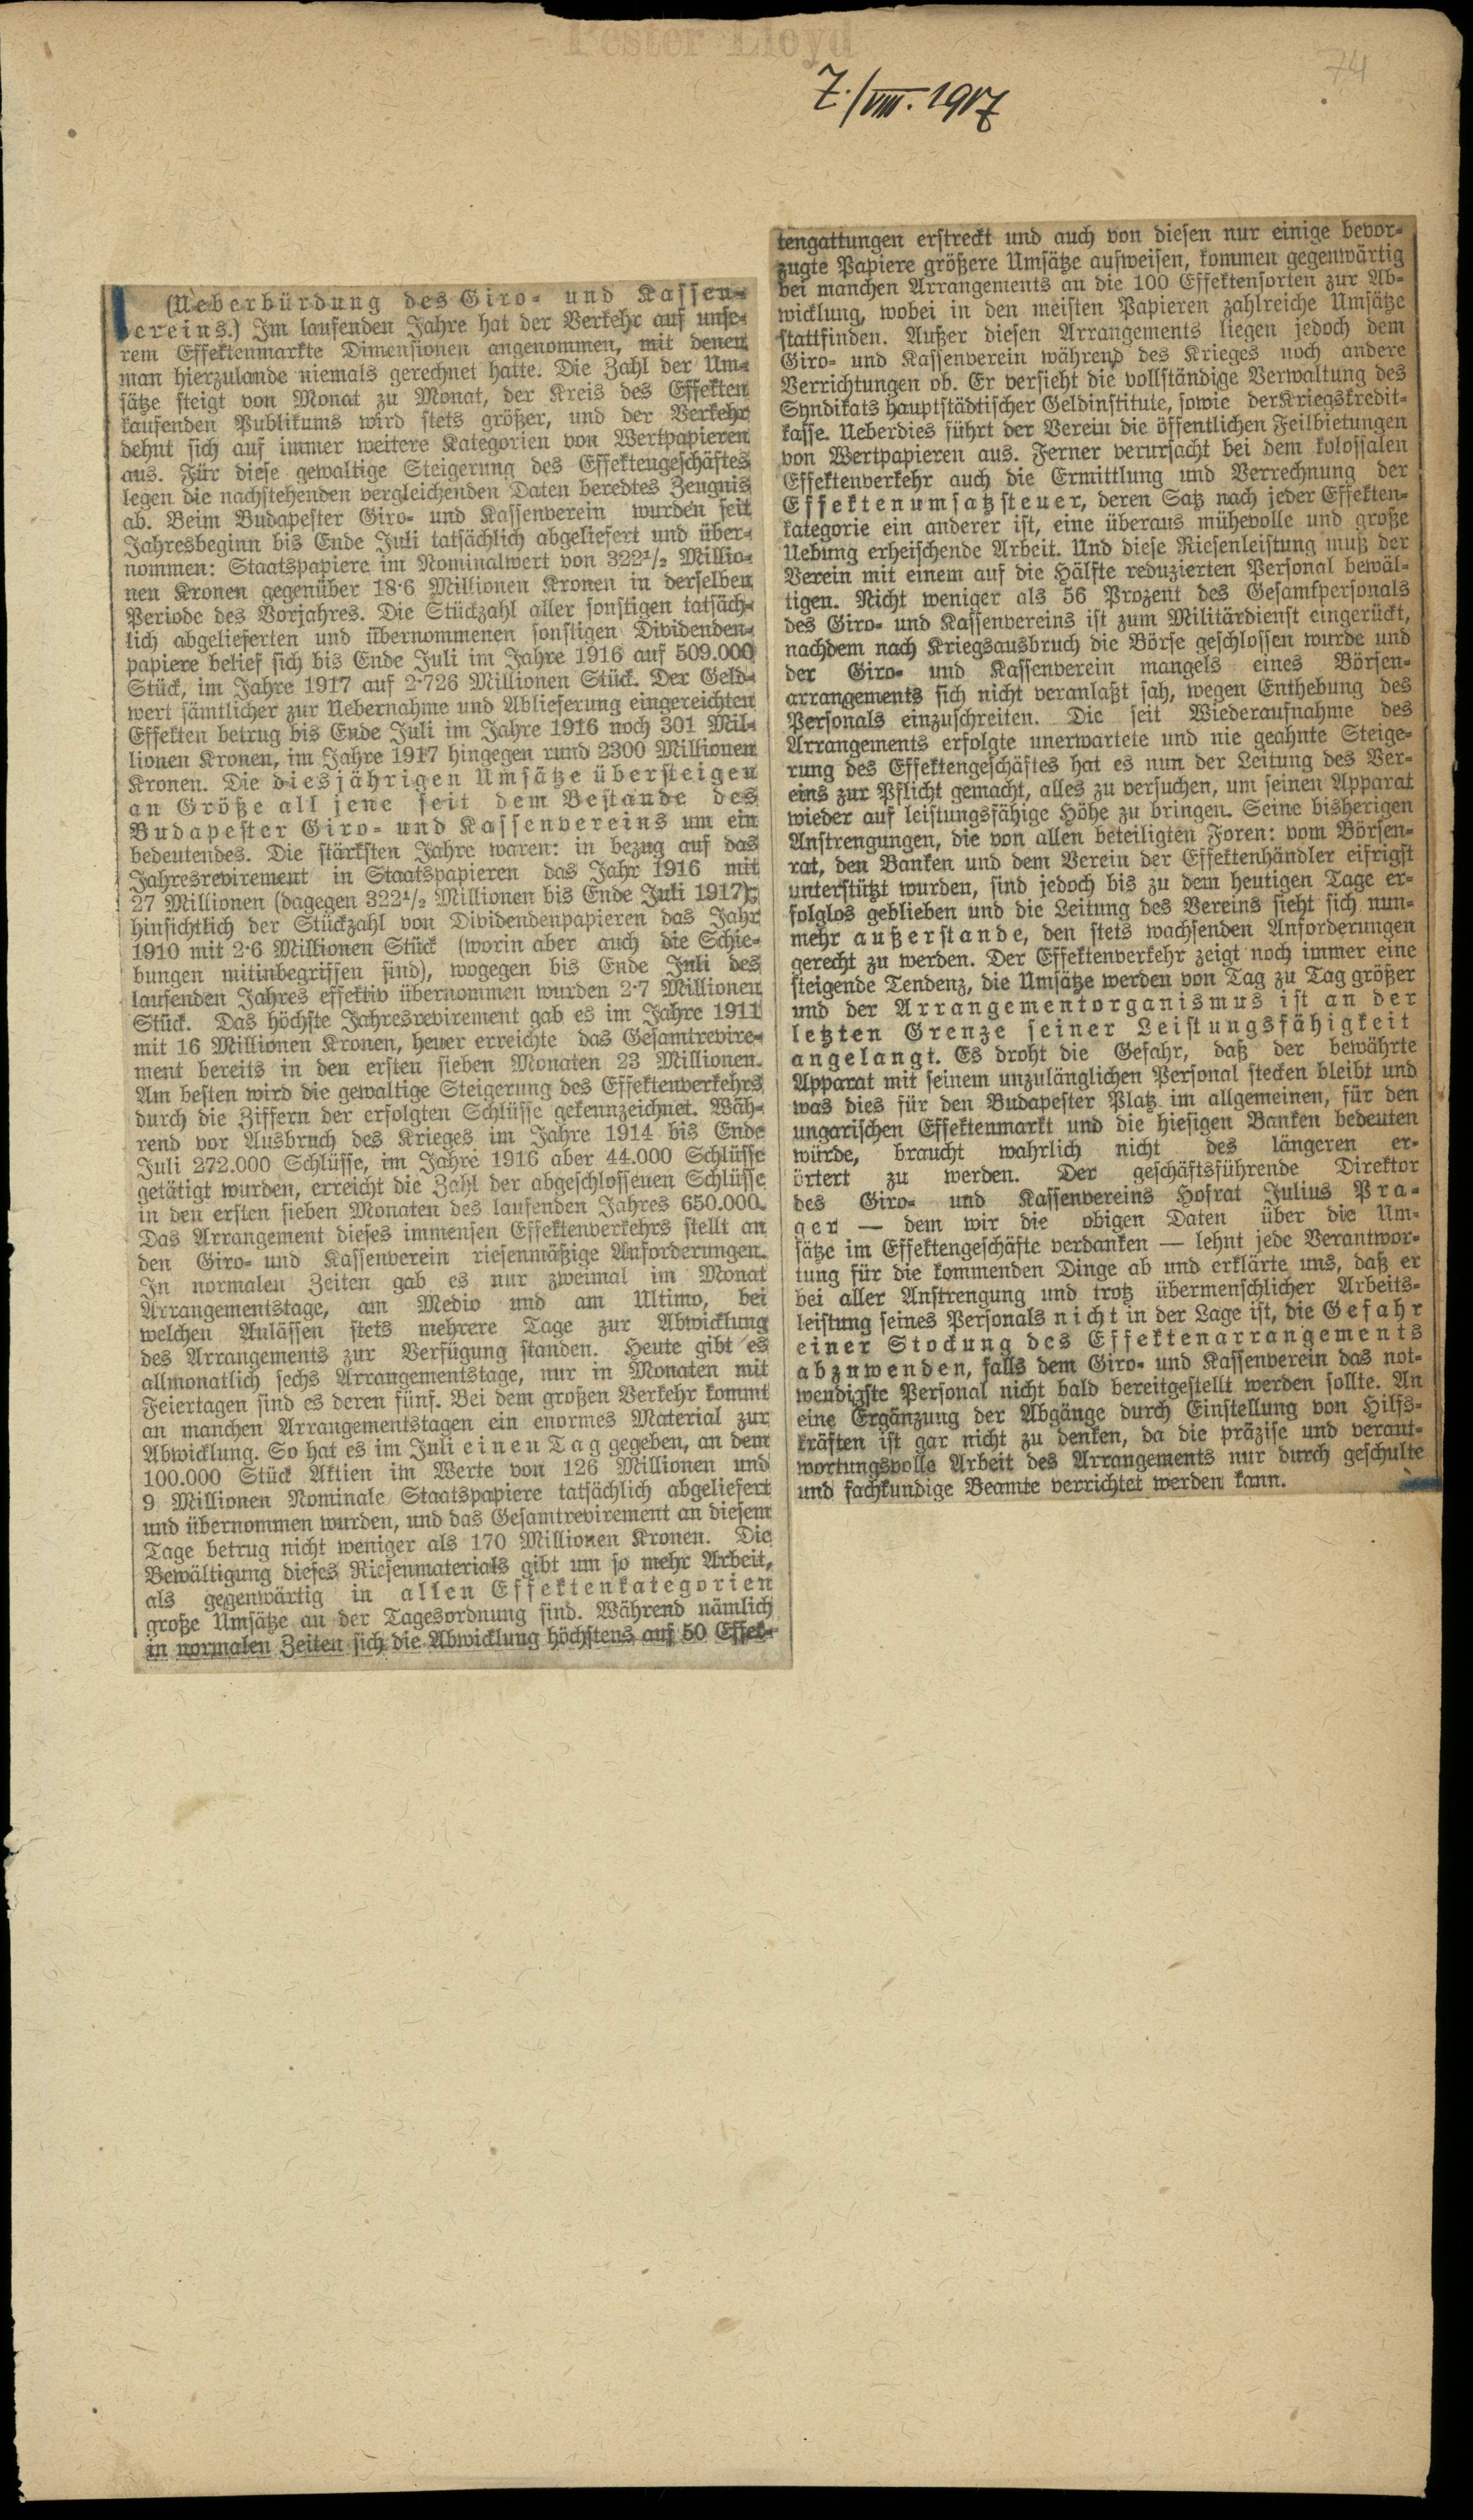 Pester Lloyd
7./VIII. 1917
74
(Ueberbürdung des Giro- und Kassen-
ereins.) Im laufenden Jahre hat der Verkehr auf unse-
rem Effektenmarkte Dimensionen angenommen, mit denen
man hierzulande niemals gerechnet hatte. Die Zahl der Um-
sätze steigt von Monat zu Monat, der Kreis des Effekten
kaufenden Publikums wird stets größer, und der Verkehr
dehnt sich auf immer weitere Kategorien von Wertpapieren
aus. Für diese gewaltige Steigerung des Effektengeschäftes
legen die nachstehenden vergleichenden Daten beredtes Zeugnis
ab. Beim Budapester Giro- und Kassenverein wurden seit
Jahresbeginn bis Ende Juli tatsächlich abgeliefert und über-
nommen: Staatspapiere im Nominalwert von 322½ Millio-
nen Kronen gegenüber 18·6 Millionen Kronen in derselben
Periode des Vorjahres. Die Stückzahl aller sonstigen tatsäch-
lich abgelieferten und übernommenen sonstigen Dividenden-
papiere belief sich bis Ende Juli im Jahre 1916 auf 509.000
Stück, im Jahre 1917 auf 2·726 Millionen Stück. Der Geld-
wert sämtlicher zur Uebernahme und Ablieferung eingereichten
Effekten betrug bis Ende Juli im Jahre 1916 noch 301 Mil-
lionen Kronen, im Jahre 1917 hingegen rund 2300 Millionen
Kronen. Die diesjährigen Umsätze übersteigen
an Größe all jene seit dem Bestande des
Budapester Giro- und Kassenvereins um ein
bedeutendes. Die stärksten Jahre waren: in bezug auf das
Jahresrevirement in Staatspapieren das Jahr 1916 mit
27 Millionen (dagegen 322½ Millionen bis Ende Juli 1917);
hinsichtlich der Stückzahl von Dividendenpapieren das Jahr
1910 mit 2·6 Millionen Stück (worin aber auch die Schie-
bungen mitinbegriffen sind), wogegen bis Ende Juli des
laufenden Jahres effektiv übernommen wurden 2·7 Millionen
Stück. Das höchste Jahresrevirement gab es im Jahre 1911
mit 16 Millionen Kronen, heuer erreichte das Gesamtrevire-
ment bereits in den ersten sieben Monaten 23 Millionen.
Am besten wird die gewaltige Steigerung des Effektenverkehrs
durch die Ziffern der erfolgten Schlüsse gekennzeichnet. Wäh-
rend vor Ausbruch des Krieges im Jahre 1914 bis Ende
Juli 272.000 Schlüsse, im Jahre 1916 aber 44.000 Schlüsse
getätigt wurden, erreicht die Zahl der abgeschlossenen Schlüsse
in den ersten sieben Monaten des laufenden Jahres 650.000.
Das Arrangement dieses immensen Effektenverkehrs stellt an
den Giro- und Kassenverein riesenmäßige Anforderungen.
In normalen Zeiten gab es nur zweimal im Monat
Arrangementstage, am Medio und am Ultimo, bei
welchen Anlässen stets mehrere Tage zur Abwicklung
des Arrangements zur Verfügung standen. Heute gibt es
allmonatlich sechs Arrangementstage, nur in Monaten mit
Feiertagen sind es deren fünf. Bei dem großen Verkehr kommt
an manchen Arrangementstagen ein enormes Material zur
Abwicklung. So hat es im Juli einen Tag gegeben, an dem
100.000 Stück Aktien im Werte von 126 Millionen und
9 Millionen Nominale Staatspapiere tatsächlich abgeliefert
und übernommen wurden, und das Gesamtrevirement an diesem
Tage betrug nicht weniger als 170 Millionen Kronen. Die
Bewältigung dieses Riesenmaterials gibt um so mehr Arbeit,
als gegenwärtig in allen Effektenkategorien
große Umsätze an der Tagesordnung sind. Während nämlich
in normalen Zeiten sich die Abwicklung höchstens auf 50 Effek-
tengattungen erstreckt und auch von diesen nur einige bevor-
zugte Papiere größere Umsätze aufweisen, kommen gegenwärtig
bei manchen Arrangements an die 100 Effektensorten zur Ab-
wicklung, wobei in den meisten Papieren zahlreiche Umsätze
stattfinden. Außer diesen Arrangements liegen jedoch dem
Giro- und Kassenverein während des Krieges noch andere
Verrichtungen ob. Er versieht die vollständige Verwaltung des
Syndikats hauptstädtischer Geldinstitute, sowie der Kriegskredit-
kasse. Ueberdies führt der Verein die öffentlichen Feilbietungen
von Wertpapieren aus. Ferner verursacht bei dem kolossalen
Effektenverkehr auch die Ermittlung und Verrechnung der
Effektenumsatzsteuer, deren Satz nach jeder Effekten-
kategorie ein anderer ist, eine überaus mühevolle und große
Uebung erheischende Arbeit. Und diese Riesenleistung muß der
Verein mit einem auf die Hälfte reduzierten Personal bewäl-
tigen. Nicht weniger als 56 Prozent des Gesamtpersonals
des Giro- und Kassenvereins ist zum Militärdienst eingerückt,
nachdem nach Kriegsausbruch die Börse geschlossen wurde und
der Giro- und Kassenverein mangels eines Börsen-
arrangements sich nicht veranlaßt sah, wegen Enthebung des
Personals einzuschreiten. Die seit Wiederaufnahme des
Arrangements erfolgte unerwartete und nie geahnte Steige-
rung des Effektengeschäftes hat es nun der Leitung des Ver-
eins zur Pflicht gemacht, alles zu versuchen, um seinen Apparat
wieder auf leistungsfähige Höhe zu bringen. Seine bisherigen
Anstrengungen, die von allen beteiligten Foren: vom Börsen-
rat, den Banken und dem Verein der Effektenhändler eifrigst
unterstützt wurden, sind jedoch bis zu dem heutigen Tage er-
folglos geblieben und die Leitung des Vereins sieht sich nun-
mehr außerstande, den stets wachsenden Anforderungen
gerecht zu werden. Der Effektenverkehr zeigt noch immer eine
steigende Tendenz, die Umsätze werden von Tag zu Tag größer
und der Arrangementorganismus ist an der
letzten Grenze seiner Leistungsfähigkeit
angelangt. Es droht die Gefahr, daß der bewährte
Apparat mit seinem unzulänglichen Personal stecken bleibt und
was dies für den Budapester Platz im allgemeinen, für den
ungarischen Effektenmarkt und die hiesigen Banken bedeuten
würde, braucht wahrlich nicht des längeren er-
örtert zu werden. Der geschäftsführende Direktor
des Giro- und Kassenvereins Hofrat Julius Pra-
ger — dem wir die obigen Daten über die Um-
sätze im Effektengeschäfte verdanken — lehnt jede Verantwor-
tung für die kommenden Dinge ab und erklärte uns, daß er
bei aller Anstrengung und trotz übermenschlicher Arbeits-
leistung seines Personals nicht in der Lage ist, die Gefahr
einer Stockung des Effektenarrangements
abzuwenden, falls dem Giro- und Kassenverein das not-
wendigste Personal nicht bald bereitgestellt werden sollte. An
eine Ergänzung der Abgänge durch Einstellung von Hilfs-
kräften ist gar nicht zu denken, da die präzise und verant-
wortungsvolle Arbeit des Arrangements nur durch geschulte
und fachkundige Beamte verrichtet werden kann.